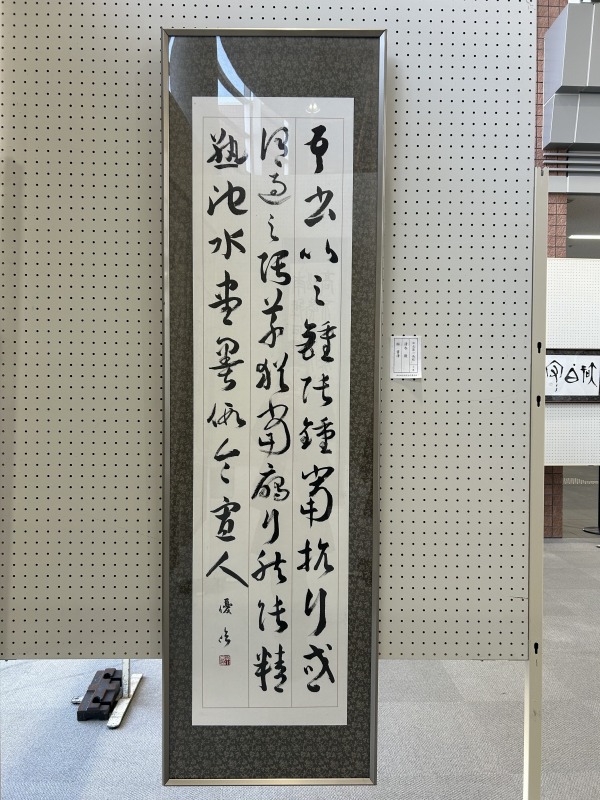 吾書比之鍾張鍾當抗行或
謂過之張草猶當鴈行然張精
熟池水盡墨假令寡人
優